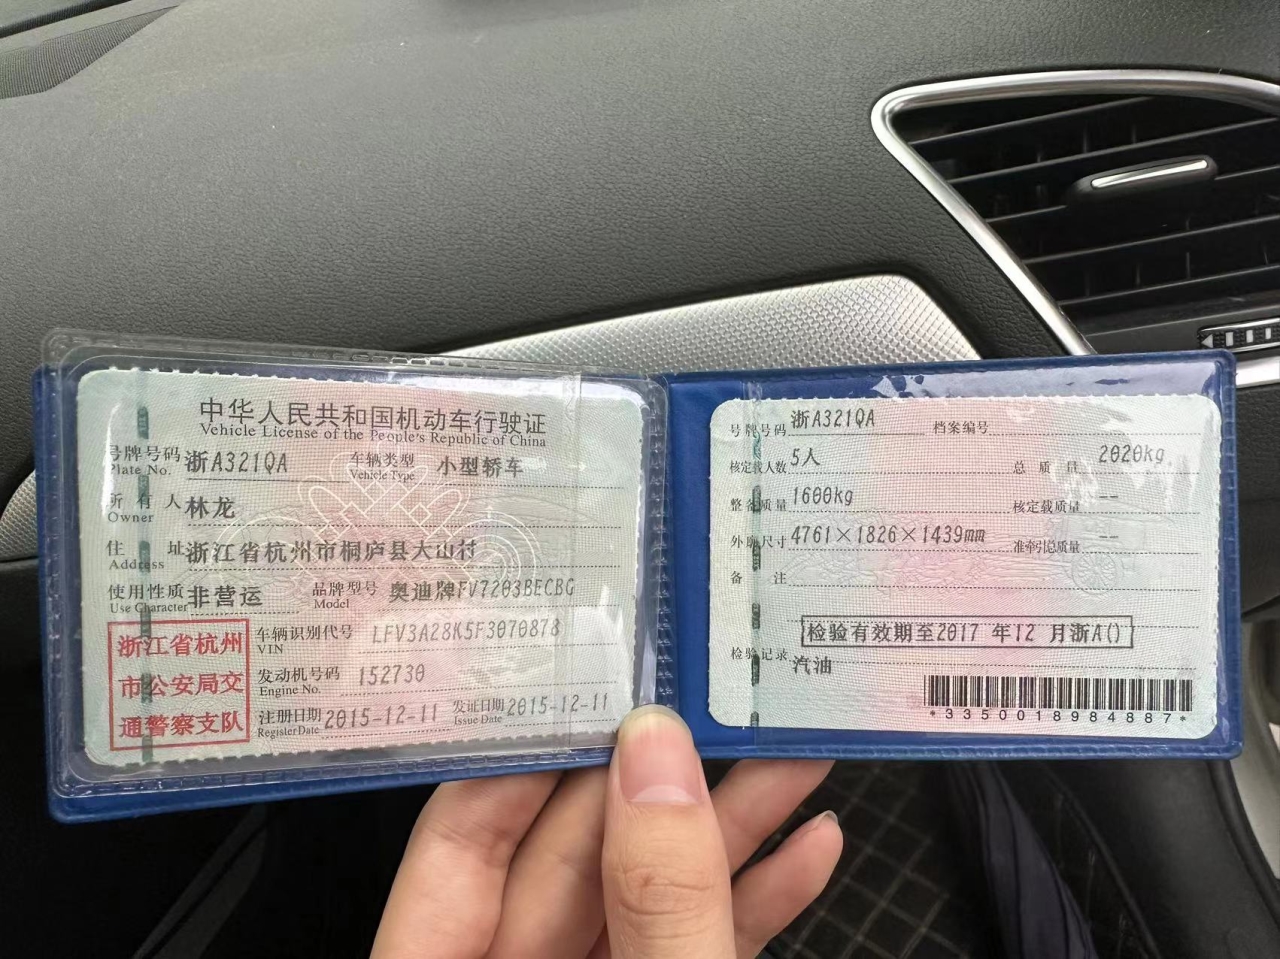 中华人民共和国机动车行驶证
Vehicle License of the People's Republic of China
号牌号码 浙A321QA 车辆类型 小型轿车
Plate No. Vehicle Type
所有人 林龙
Owner
住址 浙江省杭州市桐庐县大山村
Address
使用性质 非营运 品牌型号 奥迪牌FV7203BECBG
Use Character Model
浙江省杭州
市公安局交
通警察支队
车辆识别代号 LFV3A28K5F3070878
VIN
发动机号码 152730
Engine No.
注册日期 2015-12-11 发证日期 2015-12-11
Register Date Issue Date
号牌号码 浙A321QA 档案编号
核定载人数 5人 总质量 2020kg
整备质量 1600kg 核定载质量 --
外廓尺寸 4761×1826×1439mm 准牵引总质量 --
备注
检验有效期至2017 年12 月浙A()
检验记录 汽油
*3350018984887*